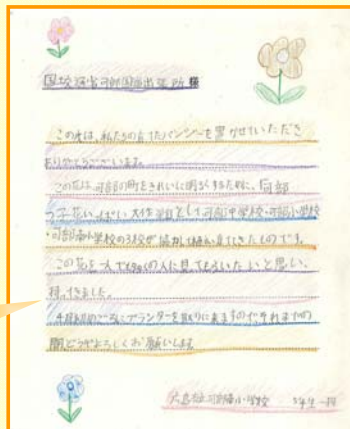 国交通省可部国道出張所 様
この度は、私たちの育てたパンジーを置かせていただき
ありがとうございます。
この花は、可部の町をきれいに明るくするために、可部
つ子花いっぱい大作戦として可部中学校・可部小学校
・可部南小学校の3校が協力して植え育てきたものです。
この花を一人でも多くの人に見てもらいたいと思い、
持ってきました。
4月初めごろにプランターを取りに来ますのでそれまでの
間どうぞよろしくお願いします
広島市立可部南小学校 5年生一同